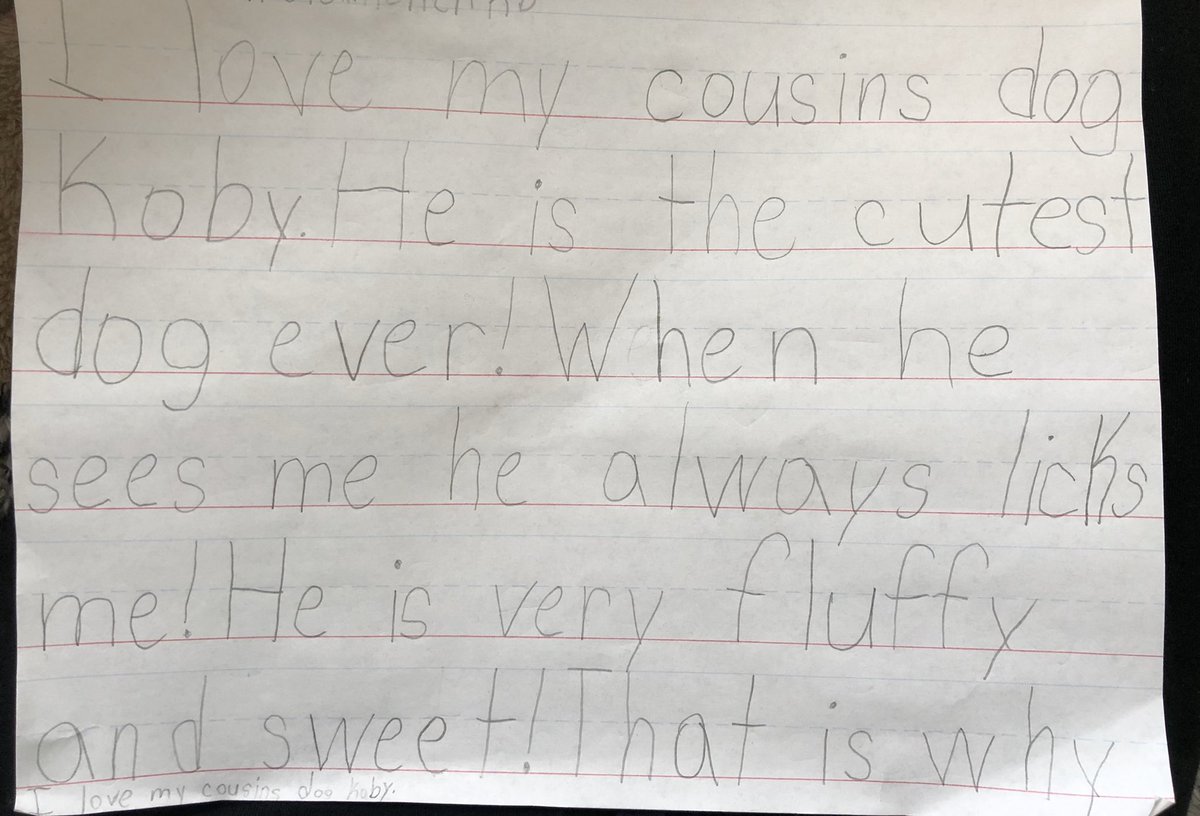 I love my cousins dog
Koby. He is the cutest
dog ever! When he
sees me he always licks
me! He is very fluffy
and sweet! That is why
I love my cousins dog koby.